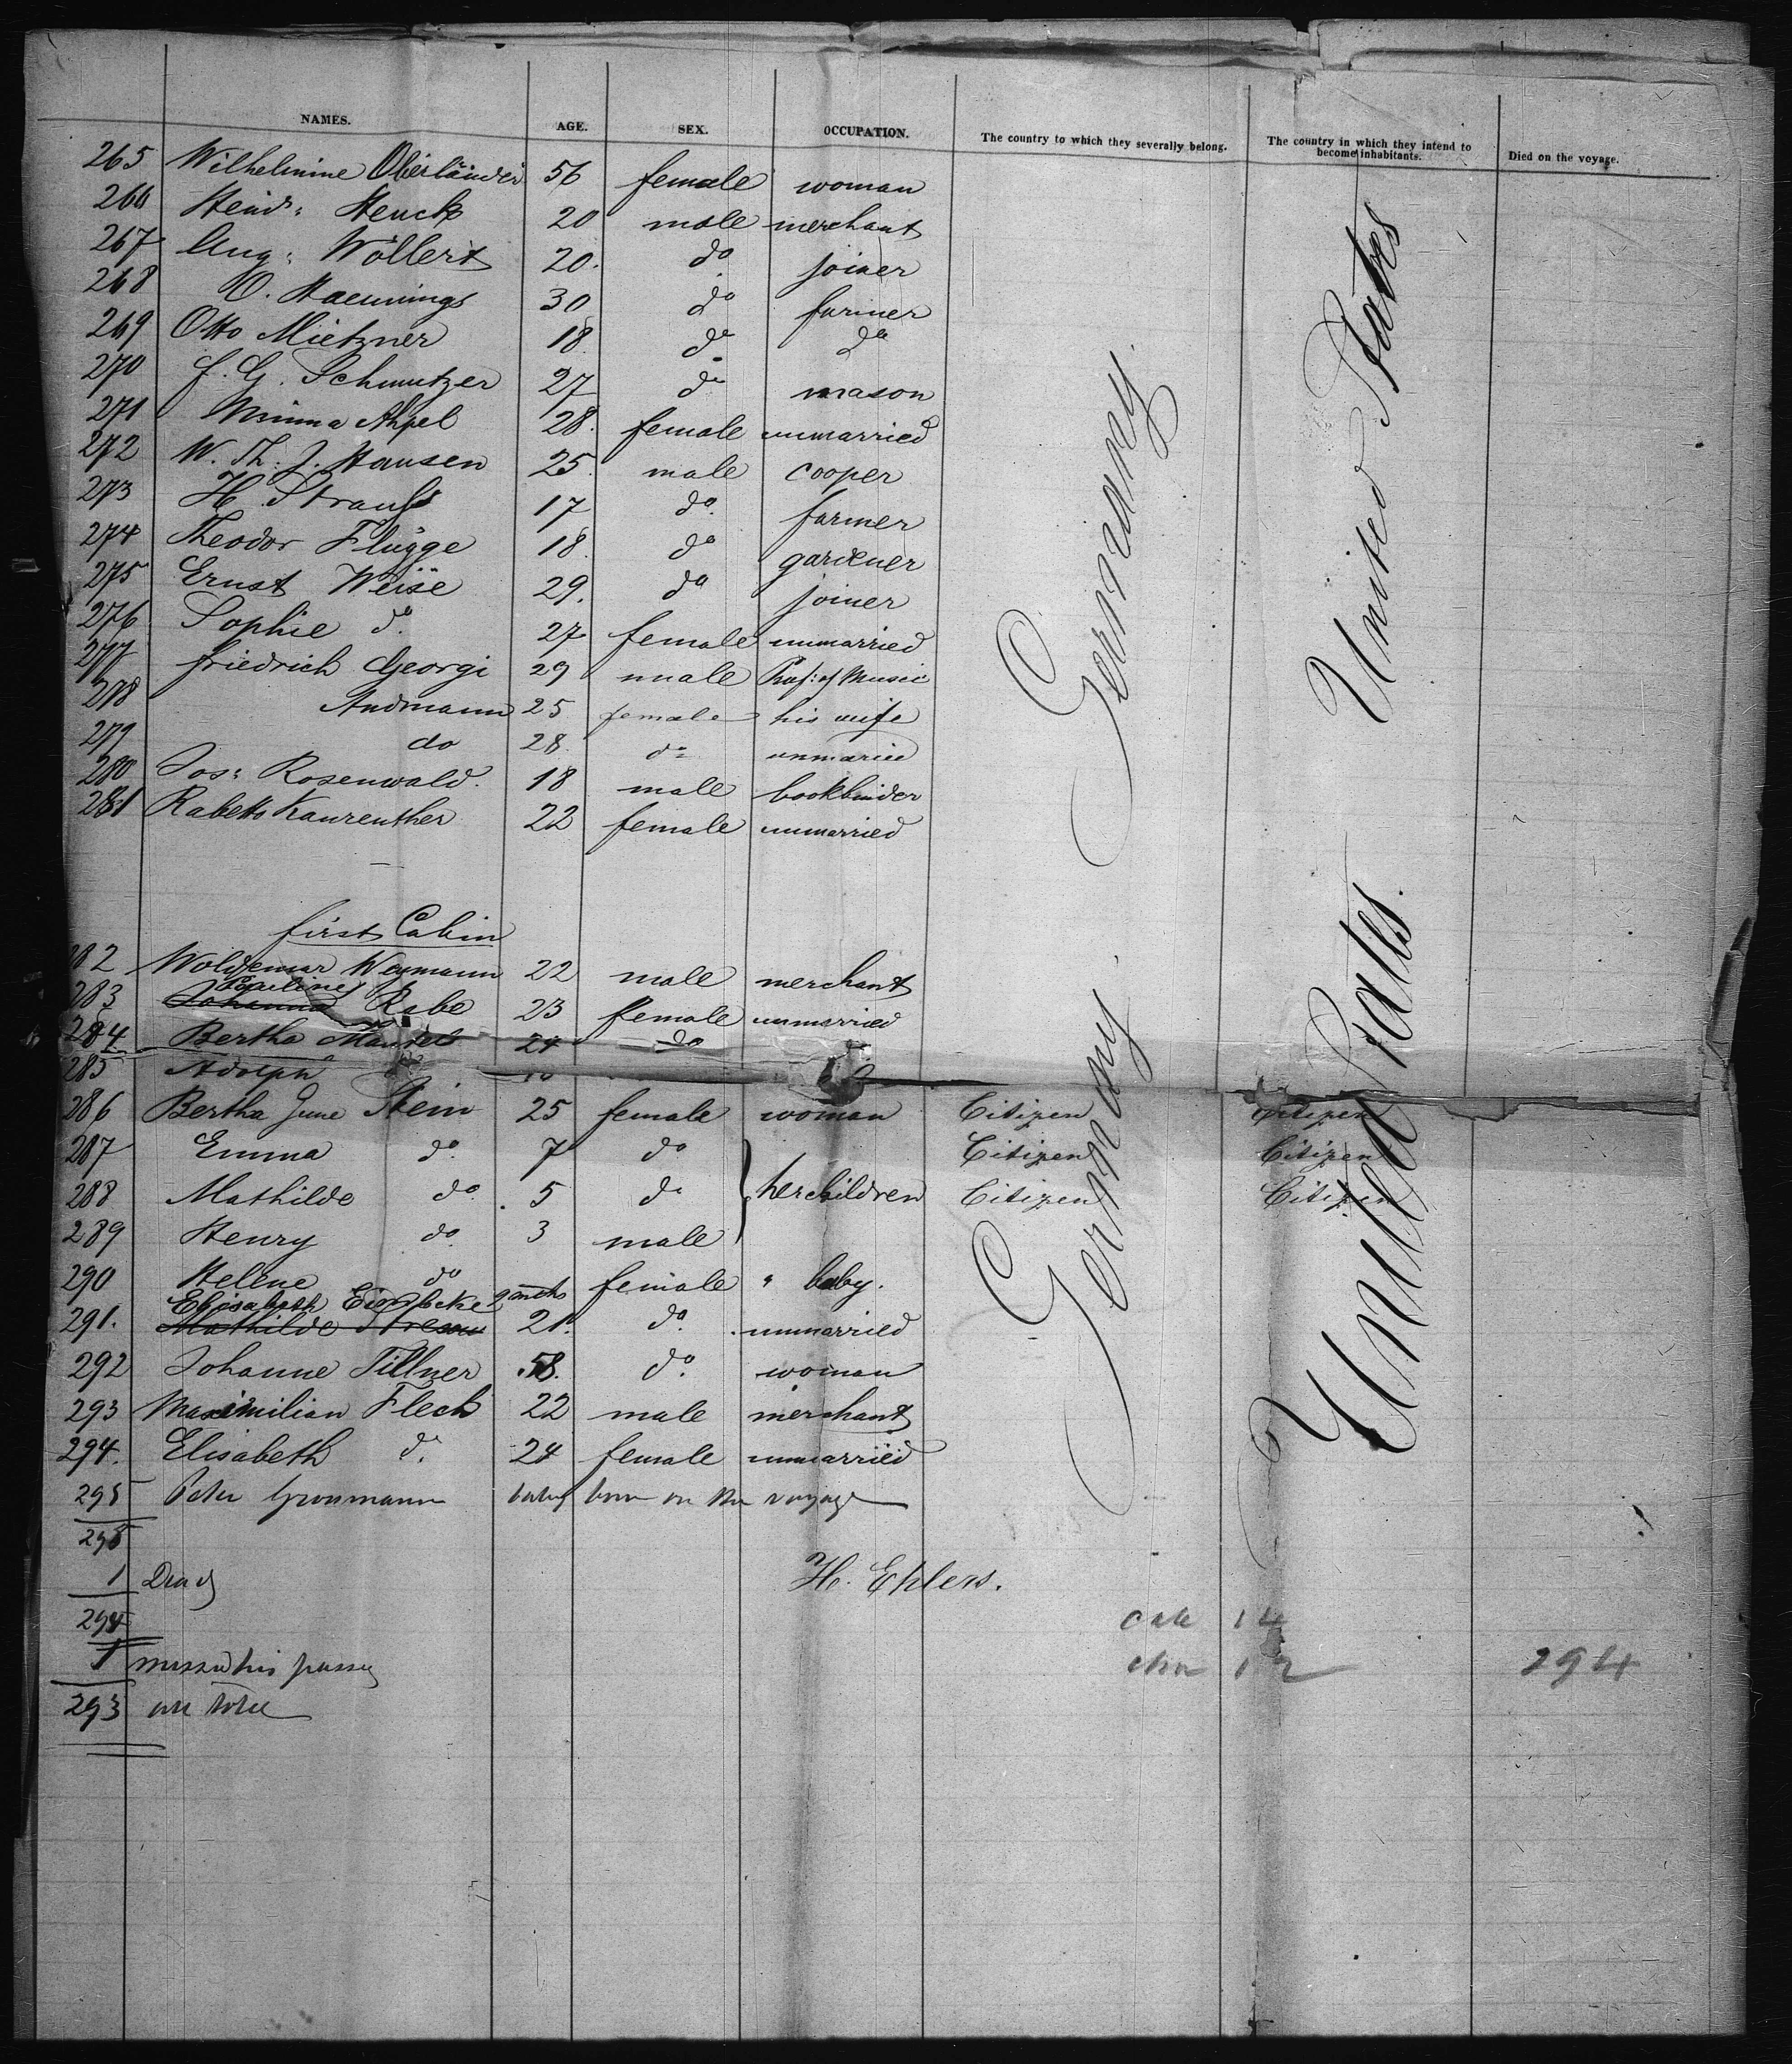 NAMES. AGE. SEX. OCCUPATION. The country to which they severally belong. The country in which they intend to become inhabitants. Died on the voyage.
265 Wilhelmine Oberländer 56 female woman
266 Heinr: Henck 20 male merchant
267 Aug: Wöllert 20. do joiner
268 O. Haennings 30 do farmer
269 Otto Mietzner 18 do do
270 J. G. Schmutzer 27 do mason
271 Minna Ahpel 28. female unmarried
272 W. Th. J. Hansen 25. male cooper
273 H. Strauß 17 do. farmer
274 Theodor Flügge 18. do gardener
275 Ernst Weise 29. do joiner
276 Sophie do. 27 female unmarried
277 Friedrich Georgi 29 male Prof: of Music
278 Andmann 25 female his wife
279 do 28. do unmarried
280 Jos: Rosenwald. 18 male bookbinder
281 Rabette Kaurenther 22 female unmarried
Germany.
United States
first Cabin
282 Woldemar Weymann 22 male merchant
Pauline
283 Johanna Rabe 23 female unmarried
284 Bertha 24 do
285 Adolph
286 Bertha June Stein 25 female woman Citizen Citizen
287 Emma do. 7 do Citizen Citizen
288 Mathilde do. 5 do her children Citizen Citizen
289 Henry do. 3 male
290 Helene do 2 mnths female " baby.
Elisabeth
291. Mathilde 21. do. unmarried
292 Johanne Tillner 58. do. woman
293 Maximilian Fleck 22 male merchant
294. Elisabeth do. 24 female unmarried
295 Peter Gronmann baby born on the voyage
Germany
United States.
295
1 Dead H. Ehlers.
294 14
1 missed his passage 12 294
293 on